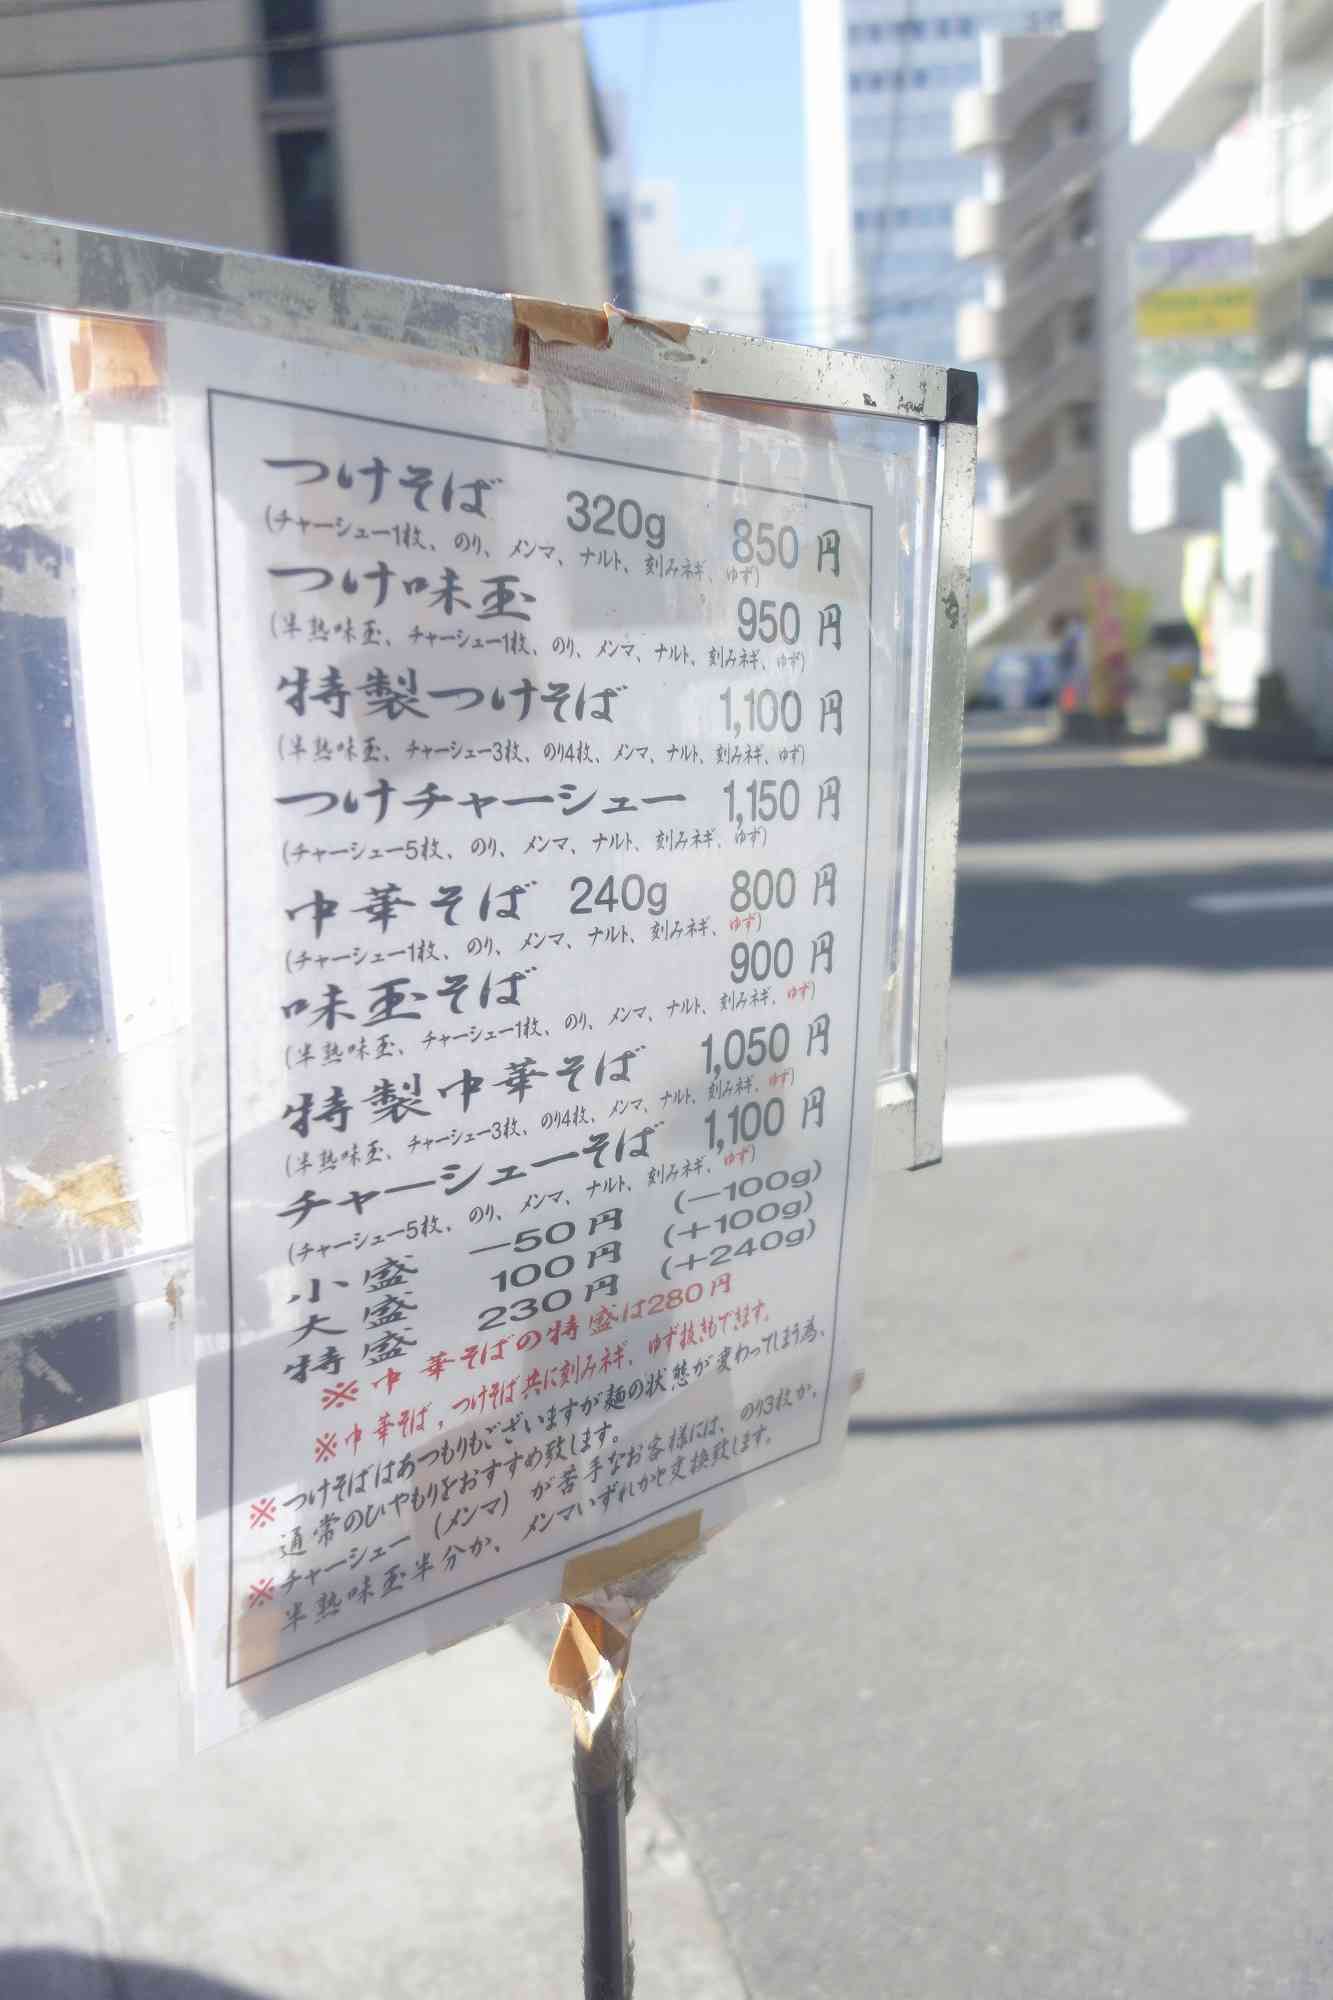 つけそば 320g 850円
(チャーシュー1枚、のり、メンマ、ナルト、刻みネギ、ゆず)
つけ味玉 950円
(半熟味玉、チャーシュー1枚、のり、メンマ、ナルト、刻みネギ、ゆず)
特製つけそば 1,100円
(半熟味玉、チャーシュー3枚、のり4枚、メンマ、ナルト、刻みネギ、ゆず)
つけチャーシュー 1,150円
(チャーシュー5枚、のり、メンマ、ナルト、刻みネギ、ゆず)
中華そば 240g 800円
(チャーシュー1枚、のり、メンマ、ナルト、刻みネギ、ゆず)
味玉そば 900円
(半熟味玉、チャーシュー1枚、のり、メンマ、ナルト、刻みネギ、ゆず)
特製中華そば 1,050円
(半熟味玉、チャーシュー3枚、のり4枚、メンマ、ナルト、刻みネギ、ゆず)
チャーシューそば 1,100円
(チャーシュー5枚、のり、メンマ、ナルト、刻みネギ、ゆず)
小盛 −50円 (−100g)
大盛 100円 (+100g)
特盛 230円 (+240g)
※中華そばの特盛は280円
※中華そば,つけそば共に刻みネギ、ゆず抜きもできます。
※つけそばはあつもりもございますが麺の状態が変わってしまう為、
通常のひやもりをおすすめ致します。
※チャーシュー(メンマ)が苦手なお客様には、のり3枚か、
半熟味玉半分か、メンマいずれかと交換致します。